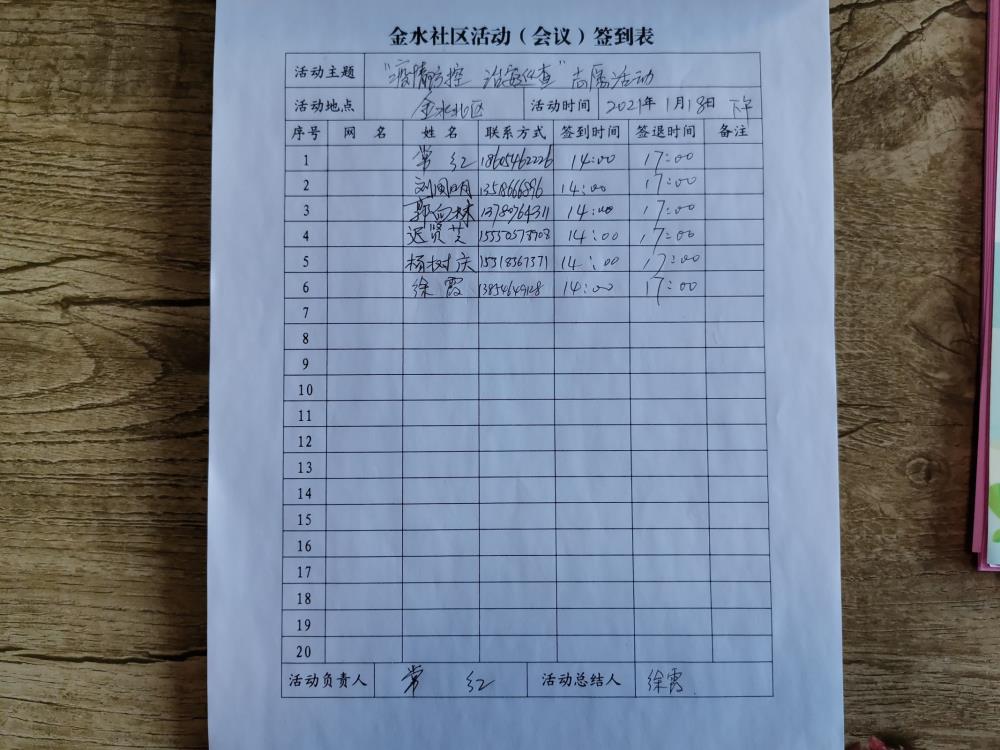 金水社区活动（会议）签到表
活动主题 "疫情防控 治安巡查"志愿活动
活动地点 金水北区 活动时间 2021年1月18日 下午
序号 网名 姓名 联系方式 签到时间 签退时间 备注
1 常红 18605462226 14:00 17:00
2 14:00 17:00
3 14:00 17:00
4 迟贤芝 15550578908 14:00 17:00
5 杨树庆 15318361371 14:00 17:00
6 徐霞 14:00 17:00
7
8
9
10
11
12
13
14
15
16
17
18
19
20
活动负责人 常红 活动总结人 徐霞